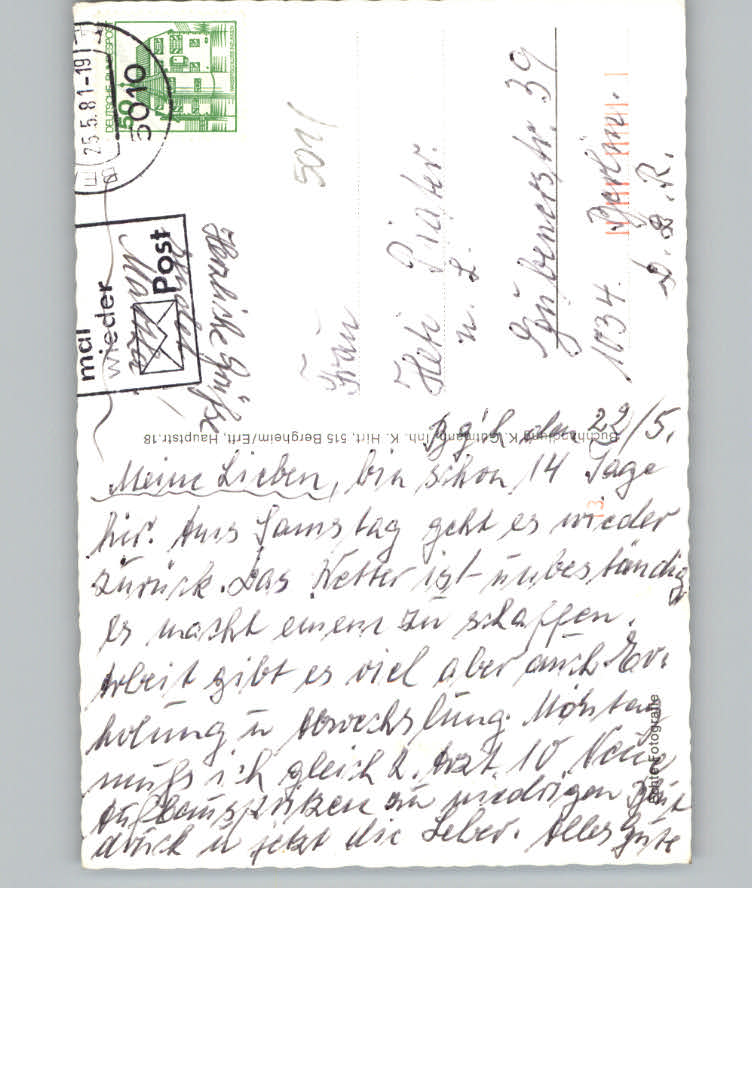 Bgh den 22/5.
Meine Lieben, bin schon 14 Tage
hir. Am Samstag geht es wieder
zurück. Das Wetter ist unbeständig
es macht einem zu schaffen.
Arbeit gibt es viel aber auch Er-
holung u Abwechslung. Montag
muß ich gleich z. Arzt. 10 Neue
Aufbauspritzen zu niedrigen Blut
druck u jetzt die Leber. Alles Gute
Herzliche Grüße
Frau
u. L.
Gubenerstr. 39
1034. Berlin.
D. D. R.
5011
mal
wieder
Post
25.5.81-19
5010
DEUTSCHE BUNDESPOST
50
Buchhandlung K. Gutmann, Inh. K. Hirt, 515 Bergheim/Erft, Hauptstr. 18
Echte Fotografie
13